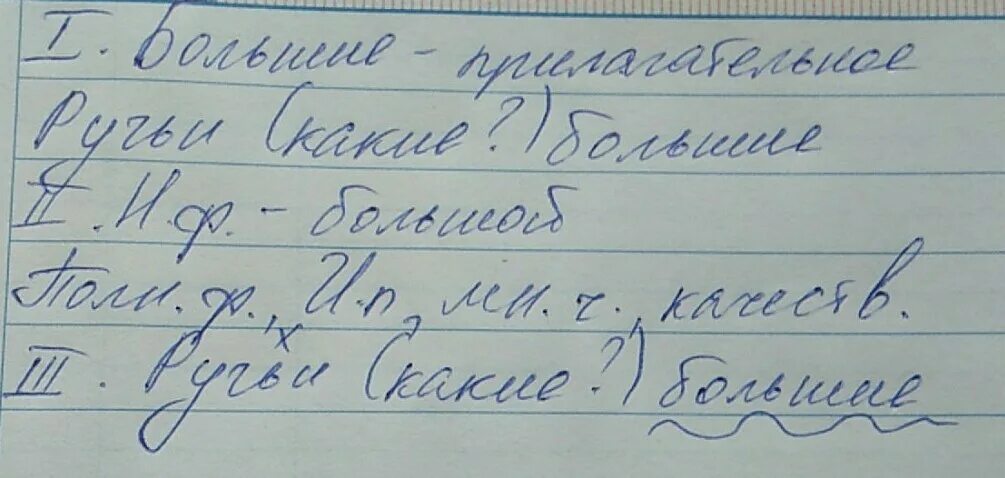 I. Большие - прилагательное
Ручьи (какие?) большие
II. Н.ф. - большой
Полн.ф., И.п., мн.ч., качеств.
III. Ручьи (какие?) большие